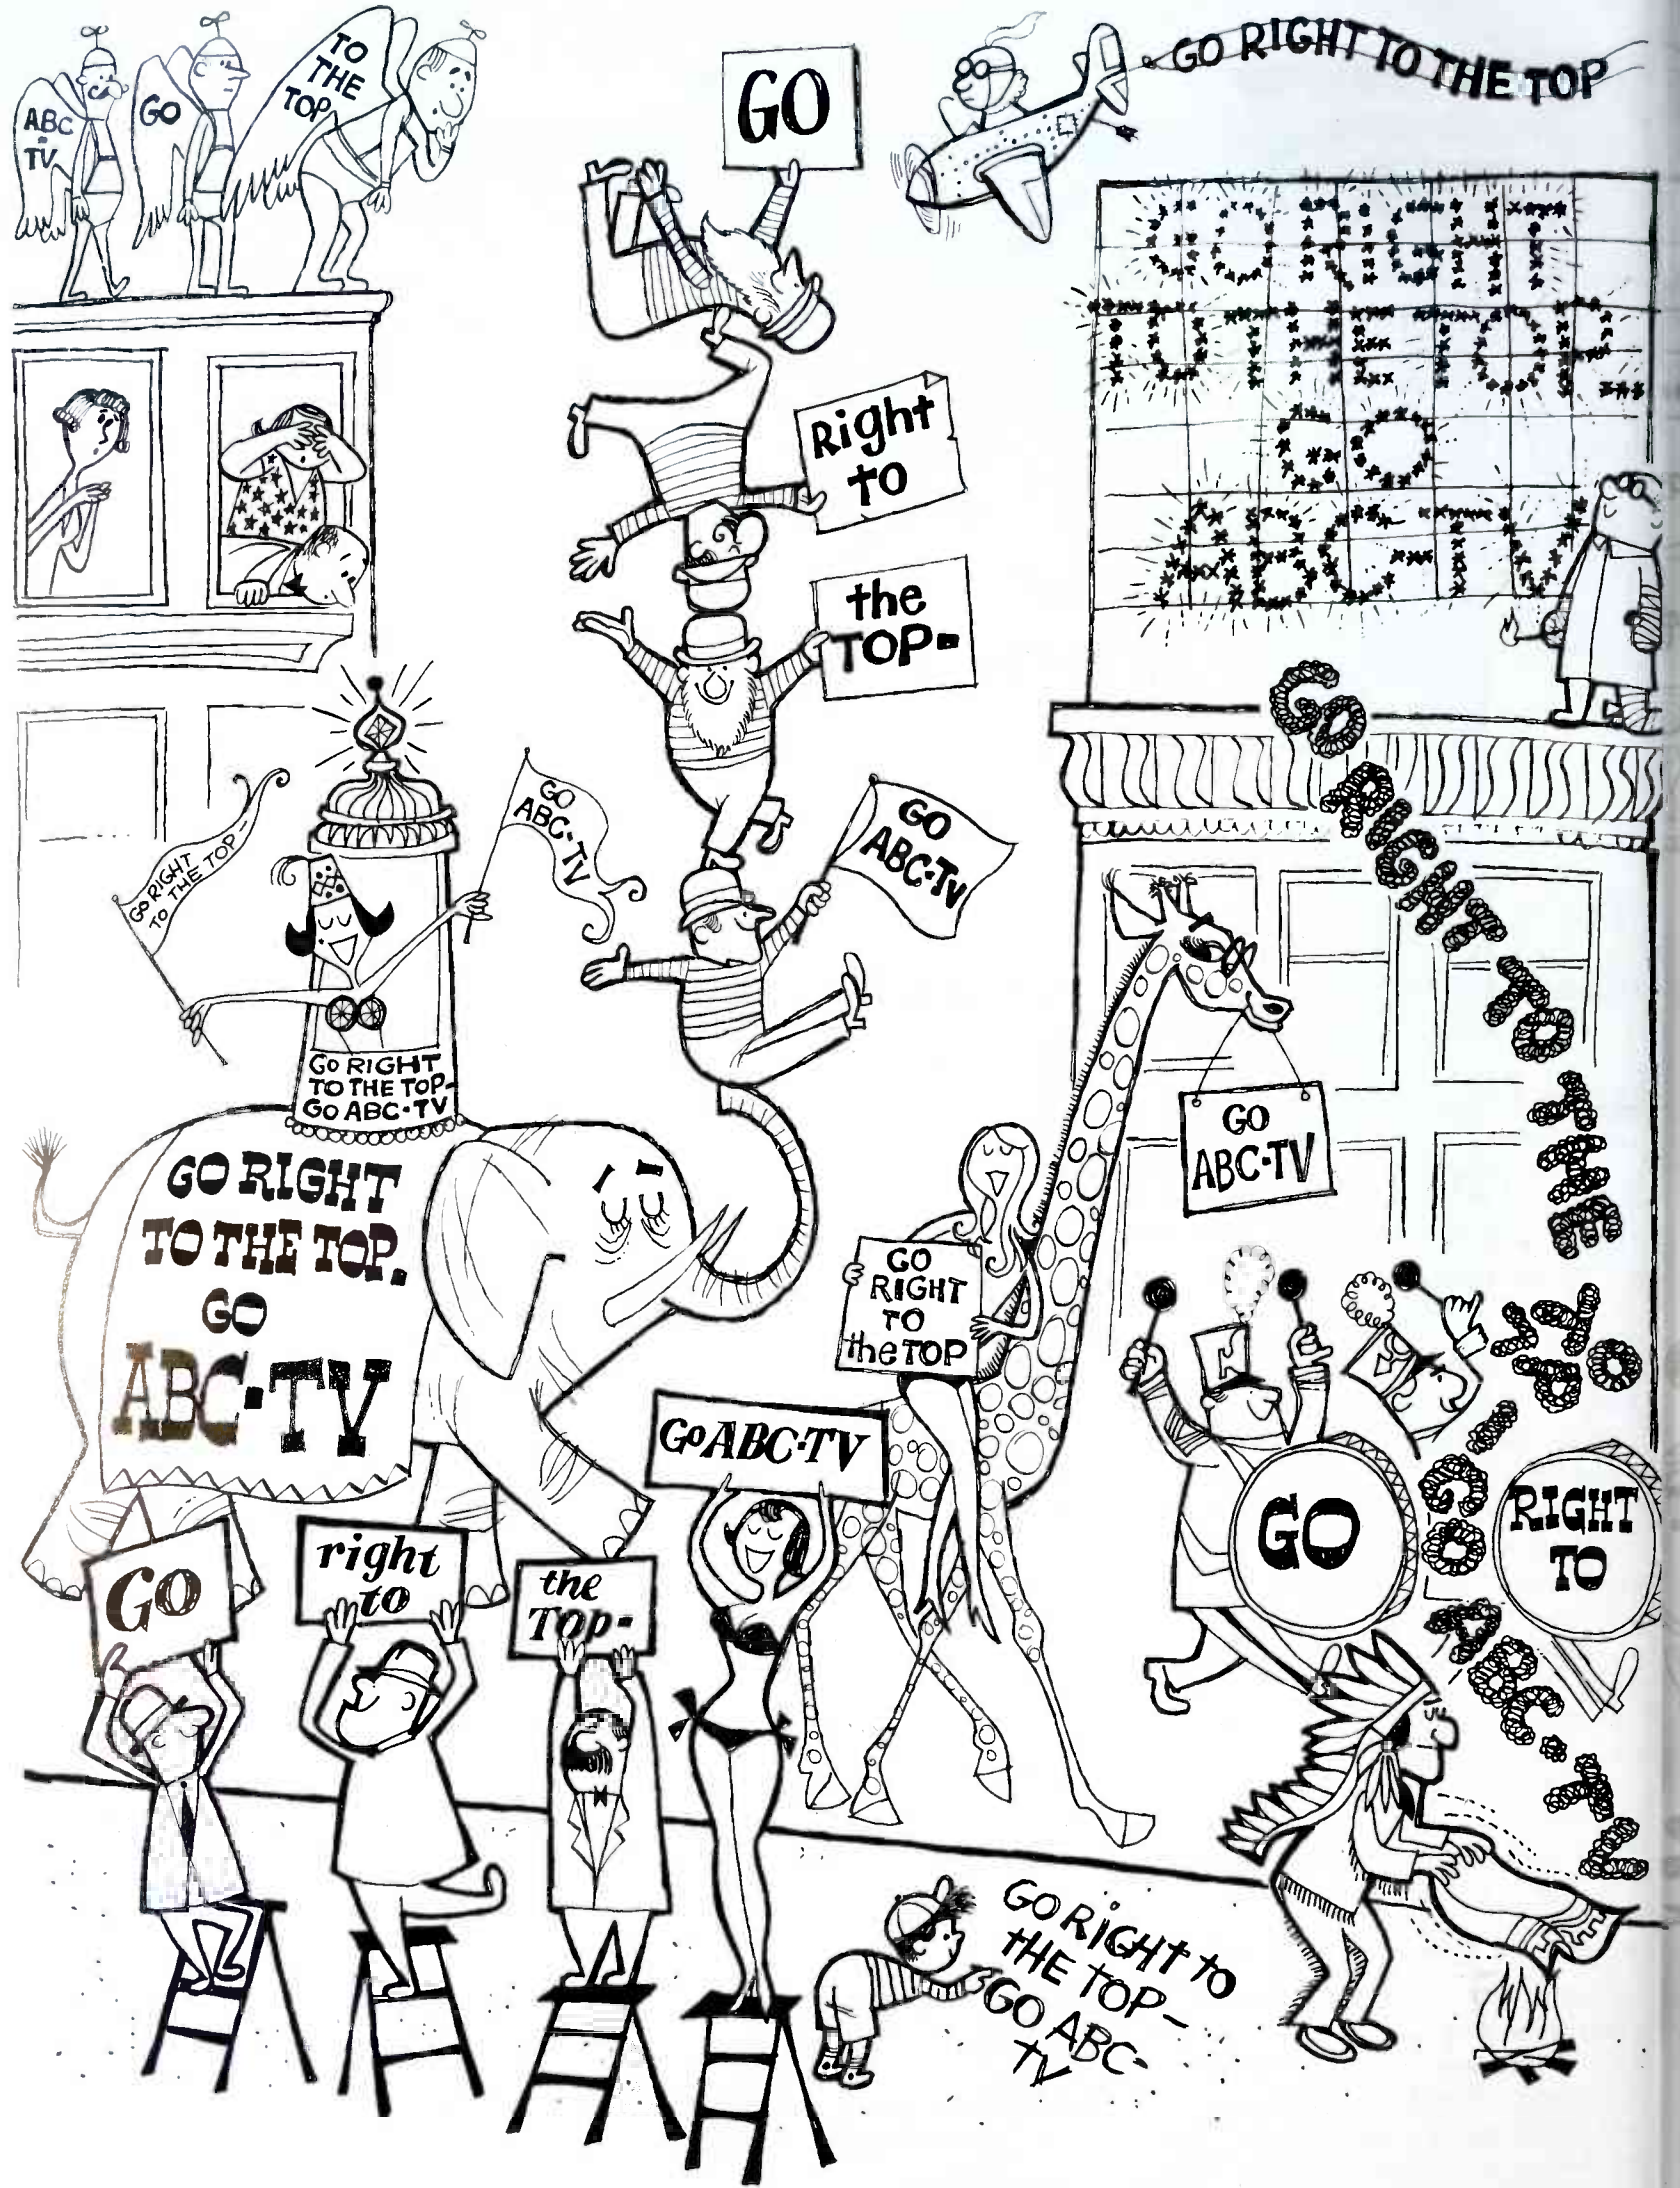 ABC
-
TV
GO
TO
THE
TOP
GO
GO RIGHT TO THE TOP
GO RIGHT
TO THE TOP...
GO
ABC-TV
Right
to
the
TOP-
GO RIGHT
TO THE TOP-
GO
ABC-TV
GO
ABC-TV
GO RIGHT
TO THE TOP-
GO ABC-TV
GO RIGHT TO THE TOP GO ABC-TV
GO RIGHT
TO THE TOP.
GO
ABC-TV
GO
ABC-TV
GO
RIGHT
TO
the TOP
GO ABC-TV
GO
RIGHT
TO
GO
right
to
the
TOP-
GO RiGHT to
tHE TOP-
GO ABC-
TV